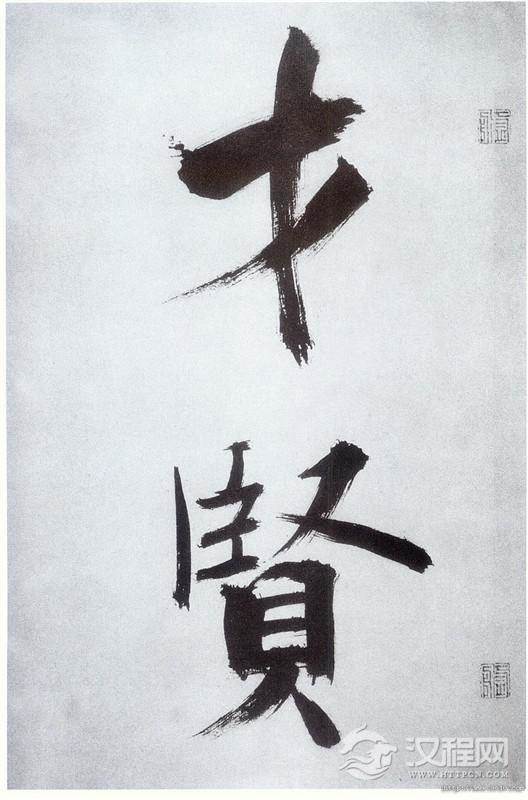 才
賢
汉程网
WWW.HTTPCN.COM